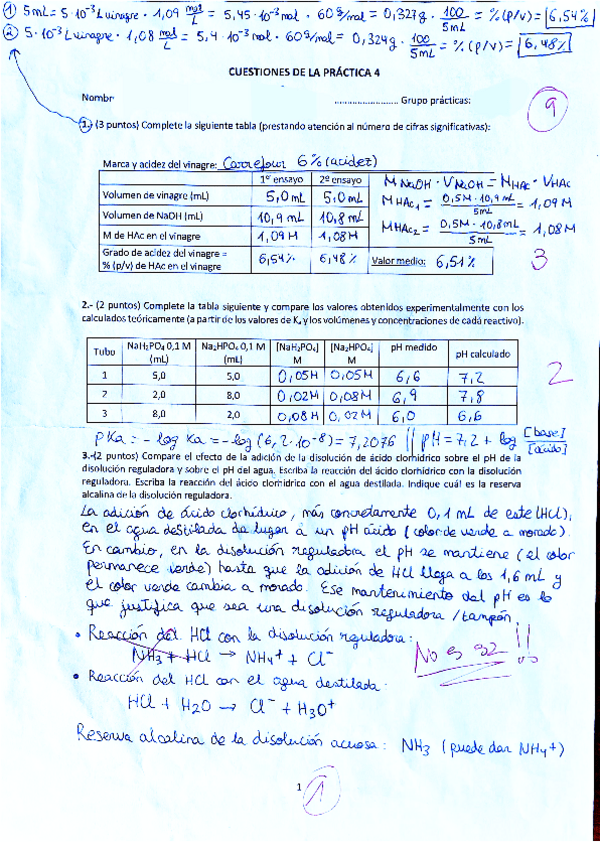 ① 5mL = 5·10⁻³ L vinagre · 1,09 mol/L = 5,45·10⁻³ mol · 60 g/mol = 0,327g · 100/5mL = % (p/v) = 6,54%
② 5·10⁻³ L vinagre · 1,08 mol/L = 5,4·10⁻³ mol · 60 g/mol = 0,324g · 100/5mL = % (p/v) = 6,48%
CUESTIONES DE LA PRÁCTICA 4
Nombr ........................ Grupo prácticas:
9
1.- (3 puntos) Complete la siguiente tabla (prestando atención al número de cifras significativas):
Marca y acidez del vinagre: Carrefour 6% (acidez)
1º ensayo 2º ensayo
Volumen de vinagre (mL) 5,0 mL 5,0 mL
Volumen de NaOH (mL) 10,9 mL 10,8 mL
M de HAc en el vinagre 1,09 M 1,08 M
Grado de acidez del vinagre =
% (p/v) de HAc en el vinagre 6,54% 6,48% Valor medio: 6,51%
M NaOH · V NaOH = M HAc · V HAc
M HAc₁ = 0,5M · 10,9 mL / 5mL = 1,09 M
M HAc₂ = 0,5M · 10,8 mL / 5mL = 1,08 M
3
2.- (2 puntos) Complete la tabla siguiente y compare los valores obtenidos experimentalmente con los
calculados teóricamente (a partir de los valores de Kₐ y los volúmenes y concentraciones de cada reactivo).
Tubo NaH₂PO₄ 0,1 M (mL) Na₂HPO₄ 0,1 M (mL) [NaH₂PO₄] M [Na₂HPO₄] M pH medido pH calculado
1 5,0 5,0 0,05M 0,05M 6,6 7,2
2 2,0 8,0 0,02M 0,08M 6,9 7,8
3 8,0 2,0 0,08M 0,02M 6,0 6,6
2
pKa = -log Ka = -log (6,2·10⁻⁸) = 7,2076 || pH = 7,2 + log [base]/[ácido]
3.- (2 puntos) Compare el efecto de la adición de la disolución de ácido clorhídrico sobre el pH de la
disolución reguladora y sobre el pH del agua. Escriba la reacción del ácido clorhídrico con la disolución
reguladora. Escriba la reacción del ácido clorhídrico con el agua destilada. Indique cuál es la reserva
alcalina de la disolución reguladora.
La adición de ácido clorhídrico, más concretamente 0,1 mL de este (HCl),
en el agua destilada da lugar a un pH ácido (color de verde a morado).
En cambio, en la disolución reguladora el pH se mantiene (el color
permanece verde) hasta que la adición de HCl llega a los 1,6 mL y
el color verde cambia a morado. Ese mantenimiento del pH es lo
que justifica que sea una disolución reguladora / tampón.
• Reacción del HCl con la disolución reguladora:
NH₃ + HCl → NH₄⁺ + Cl⁻
No es así!!
• Reacción del HCl con el agua destilada.
HCl + H2O → Cl⁻ + H₃O⁺
Reserva alcalina de la disolución acuosa: NH₃ (puede dar NH₄⁺)
1
1